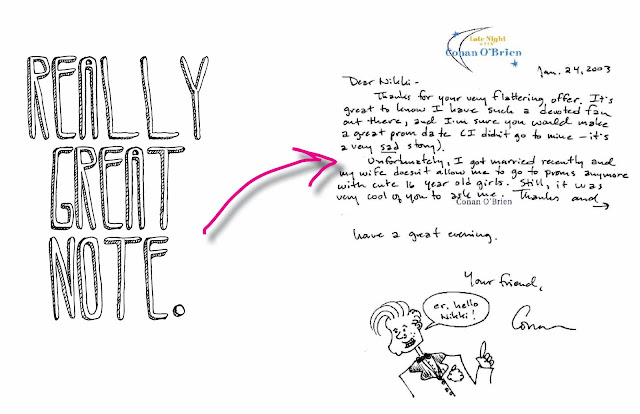 REALLY
GREAT
NOTE.
Late Night
with
Conan O'Brien
Jan. 24, 2003
Dear Nikki -
Thanks for your very flattering offer. It's
great to know I have such a devoted fan
out there, and I'm sure you would make
a great prom date (I didn't go to mine - it's
a very sad story).
Unfortunately, I got married recently and
my wife doesn't allow me to go to proms anymore
with cute 16 year old girls. Still, it was
very cool of you to ask me. Thanks and
Conan O'Brien
have a great evening.
Your friend,
er, hello
Nikki!
Conan